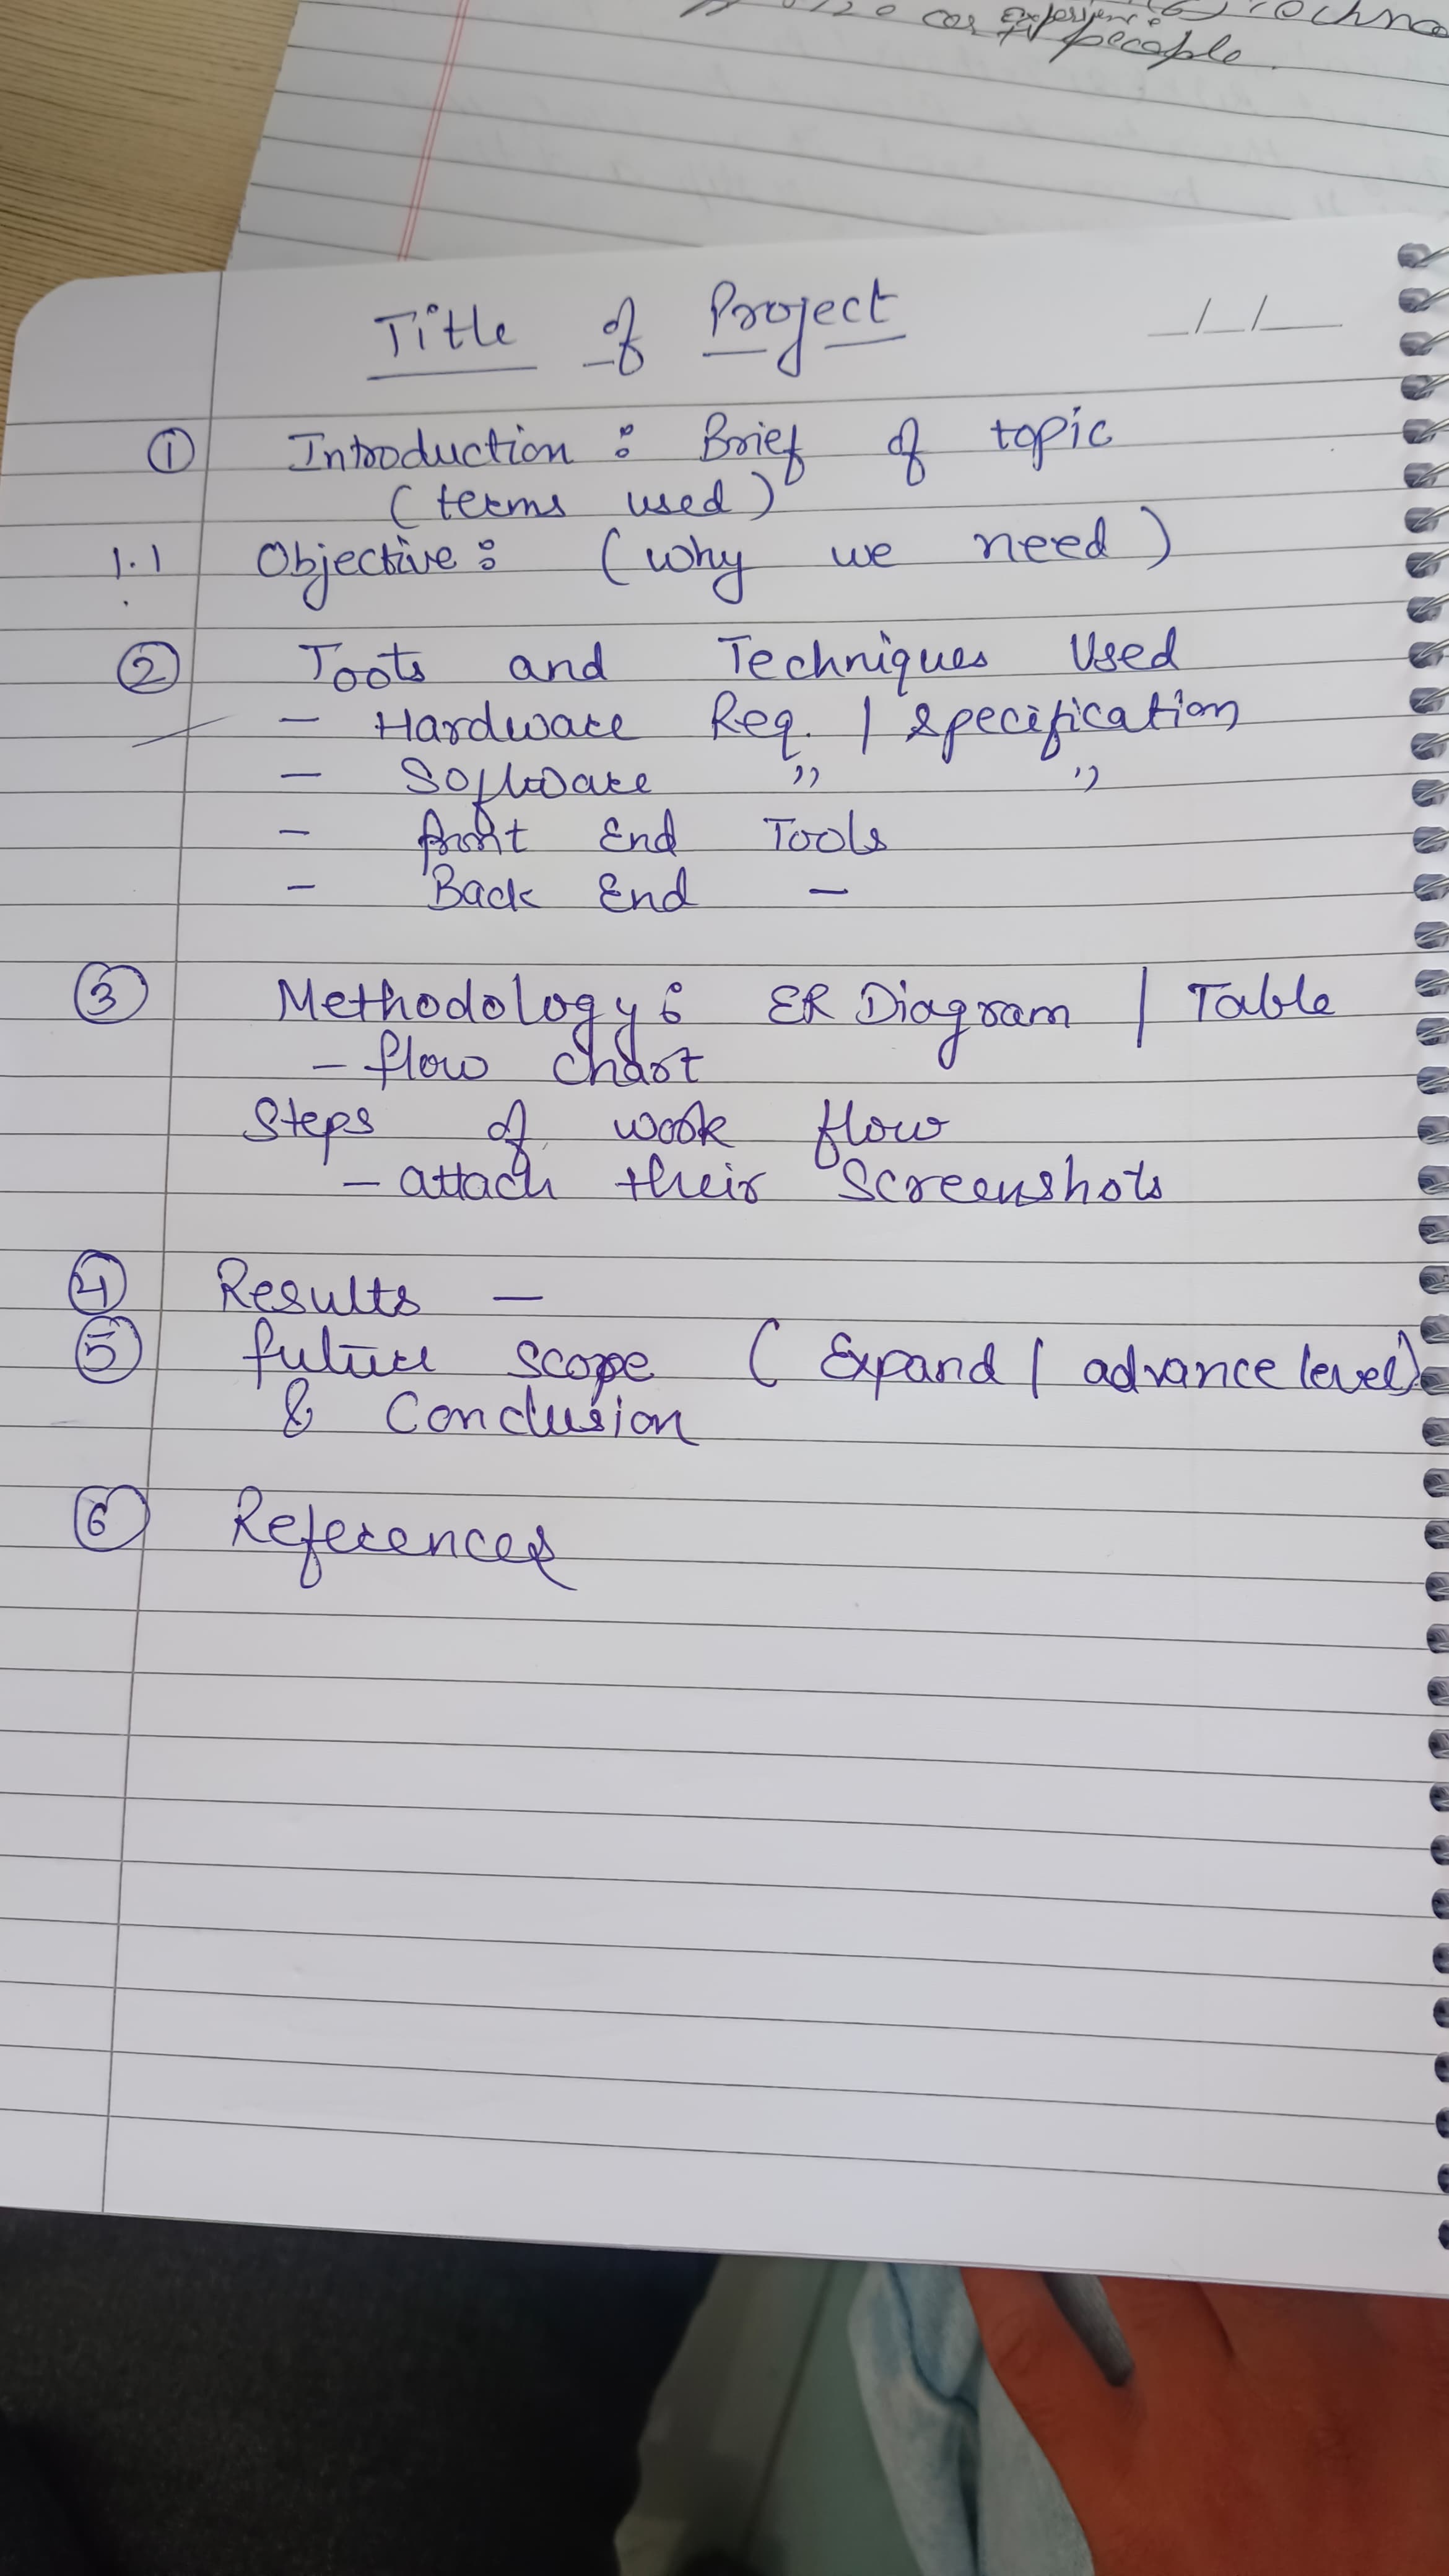 or experience
for people.
Title of Project
_/_/__
① Introduction : Brief of topic
(terms used)
1.1 Objective : (why we need)
② Tools and Techniques Used
- Hardware Req. / specification
- Software " "
- front End Tools
- Back End -
③ Methodology : ER Diagram / Table
- flow chart
Steps of work flow
- attach their Screenshots
④ Results -
⑤ future scope ( Expand / advance level)
& Conclusion
⑥ References